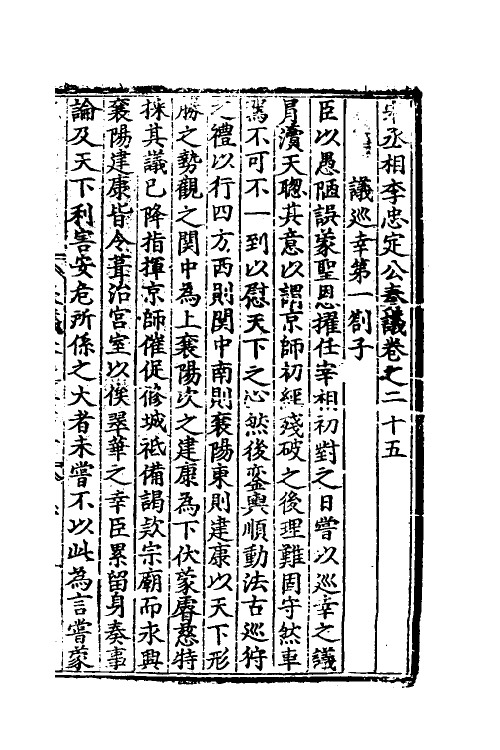 丞相李忠定公奏議卷之二十五
議巡幸第一劄子
臣以愚陋誤蒙聖恩擢任宰相初對之日嘗以巡幸之議
冐瀆天聰其意以謂京師初經殘破之後理難固守然車
駕不可不一到以慰天下之心然後鑾輿順動法古巡狩
之禮以行四方西則関中南則襄陽東則建康以天下形
勝之勢觀之関中為上襄陽次之建康為下伏蒙睿慈特
採其議已降指揮京師催促修城祗備謁款宗廟而永興
襄陽建康皆令葺治宮室以俟翠華之幸臣累留身奏事
論及天下利害安危所係之大者未嘗不以此為言嘗蒙